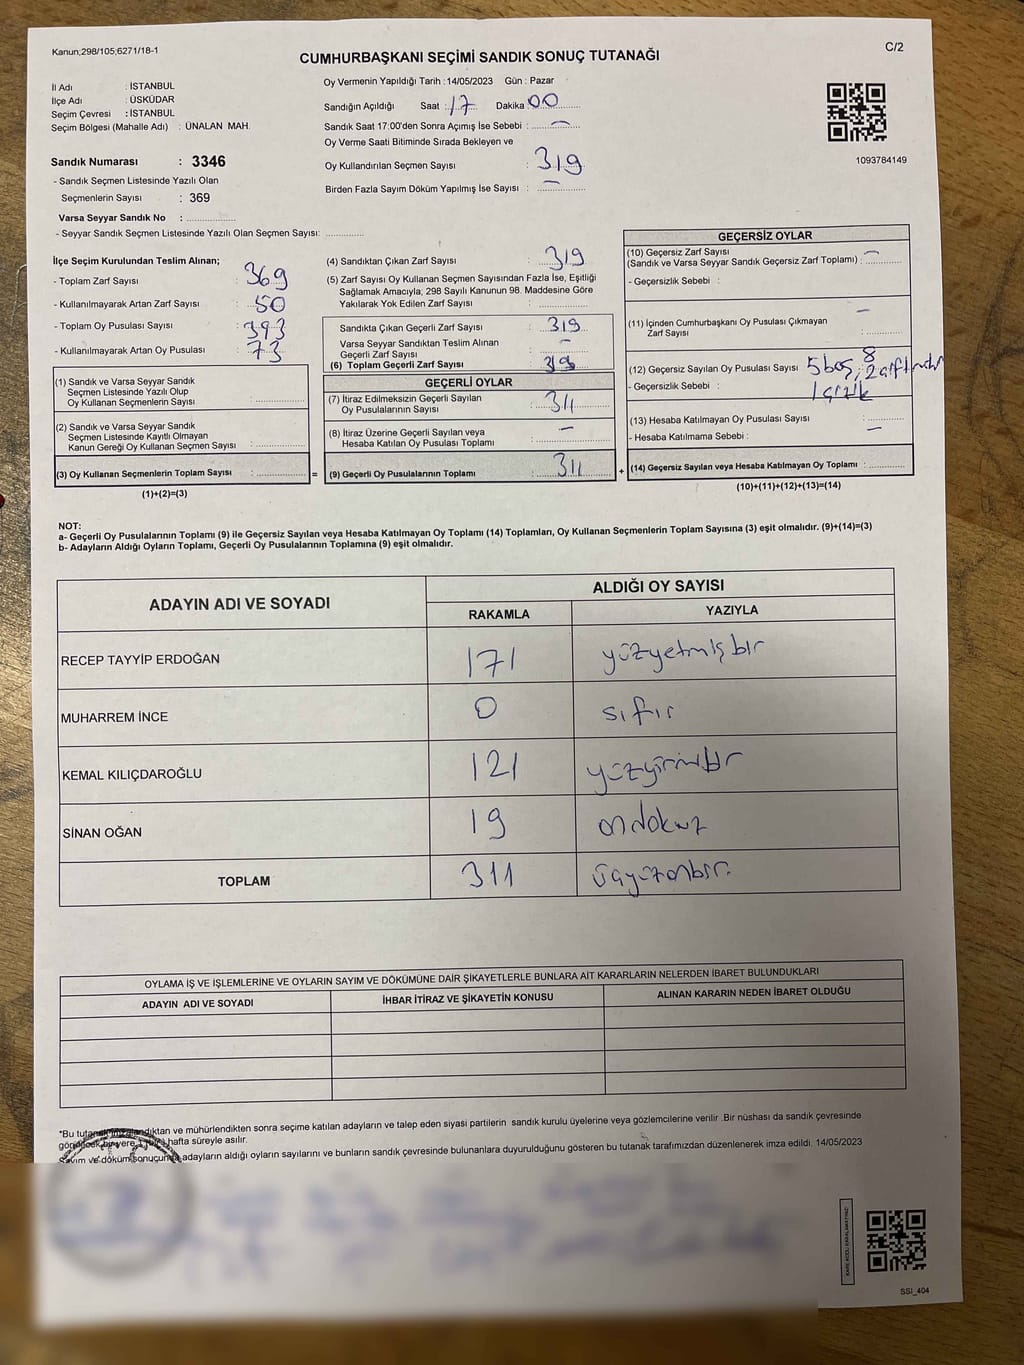 Kanun;298/105;6271/18-1
C/2
CUMHURBAŞKANI SEÇİMİ SANDIK SONUÇ TUTANAĞI
İl Adı : İSTANBUL
İlçe Adı : ÜSKÜDAR
Seçim Çevresi : İSTANBUL
Seçim Bölgesi (Mahalle Adı) : ÜNALAN MAH.
Sandık Numarası : 3346
- Sandık Seçmen Listesinde Yazılı Olan
Seçmenlerin Sayısı : 369
Varsa Seyyar Sandık No :
- Seyyar Sandık Seçmen Listesinde Yazılı Olan Seçmen Sayısı:
Oy Vermenin Yapıldığı Tarih : 14/05/2023 Gün : Pazar
Sandığın Açıldığı Saat : 17 Dakika : 00
Sandık Saat 17:00'den Sonra Açımış İse Sebebi : -
Oy Verme Saati Bitiminde Sırada Bekleyen ve
Oy Kullandırılan Seçmen Sayısı : 319
Birden Fazla Sayım Döküm Yapılmış İse Sayısı : -
1093784149
İlçe Seçim Kurulundan Teslim Alınan;
- Toplam Zarf Sayısı : 369
- Kullanılmayarak Artan Zarf Sayısı : 50
- Toplam Oy Pusulası Sayısı : 393
- Kullanılmayarak Artan Oy Pusulası : 73
(1) Sandık ve Varsa Seyyar Sandık
Seçmen Listesinde Yazılı Olup
Oy Kullanan Seçmenlerin Sayısı :
(2) Sandık ve Varsa Seyyar Sandık
Seçmen Listesinde Kayıtlı Olmayan
Kanun Gereği Oy Kullanan Seçmen Sayısı :
(3) Oy Kullanan Seçmenlerin Toplam Sayısı :
(1)+(2)=(3)
=
(4) Sandıktan Çıkan Zarf Sayısı : 319
(5) Zarf Sayısı Oy Kullanan Seçmen Sayısından Fazla İse, Eşitliği
Sağlamak Amacıyla; 298 Sayılı Kanunun 98. Maddesine Göre
Yakılarak Yok Edilen Zarf Sayısı :
Sandıkta Çıkan Geçerli Zarf Sayısı : 319
Varsa Seyyar Sandıktan Teslim Alınan
Geçerli Zarf Sayısı : -
(6) Toplam Geçerli Zarf Sayısı : 319
GEÇERLİ OYLAR
(7) İtiraz Edilmeksizin Geçerli Sayılan
Oy Pusulalarının Sayısı : 311
(8) İtiraz Üzerine Geçerli Sayılan veya
Hesaba Katılan Oy Pusulası Toplamı : -
(9) Geçerli Oy Pusulalarının Toplamı : 311
+
GEÇERSİZ OYLAR
(10) Geçersiz Zarf Sayısı
(Sandık ve Varsa Seyyar Sandık Geçersiz Zarf Toplamı) : -
- Geçersizlik Sebebi :
(11) İçinden Cumhurbaşkanı Oy Pusulası Çıkmayan
Zarf Sayısı : -
(12) Geçersiz Sayılan Oy Pusulası Sayısı : 8
5 boş, 2
- Geçersizlik Sebebi : 1 çizik
(13) Hesaba Katılmayan Oy Pusulası Sayısı :
- Hesaba Katılmama Sebebi : -
(14) Geçersiz Sayılan veya Hesaba Katılmayan Oy Toplamı :
(10)+(11)+(12)+(13)=(14)
NOT:
a- Geçerli Oy Pusulalarının Toplamı (9) ile Geçersiz Sayılan veya Hesaba Katılmayan Oy Toplamı (14) Toplamları, Oy Kullanan Seçmenlerin Toplam Sayısına (3) eşit olmalıdır. (9)+(14)=(3)
b- Adayların Aldığı Oyların Toplamı, Geçerli Oy Pusulalarının Toplamına (9) eşit olmalıdır.
ADAYIN ADI VE SOYADI
ALDIĞI OY SAYISI
RAKAMLA YAZIYLA
RECEP TAYYİP ERDOĞAN 171 yüzyetmişbir
MUHARREM İNCE 0 sıfır
KEMAL KILIÇDAROĞLU 121 yüzyirmibir
SİNAN OĞAN 19 ondokuz
TOPLAM 311 üçyüzonbir.
OYLAMA İŞ VE İŞLEMLERİNE VE OYLARIN SAYIM VE DÖKÜMÜNE DAİR ŞİKAYETLERLE BUNLARA AİT KARARLARIN NELERDEN İBARET BULUNDUKLARI
ADAYIN ADI VE SOYADI İHBAR İTİRAZ VE ŞİKAYETİN KONUSU ALINAN KARARIN NEDEN İBARET OLDUĞU
*Bu tutanak imzalandıktan ve mühürlendikten sonra seçime katılan adayların ve talep eden siyasi partilerin sandık kurulu üyelerine veya gözlemcilerine verilir .Bir nüshası da sandık çevresinde
görülecek bir yere hafta süreyle asılır.
Sayım ve döküm sonucunda adayların aldığı oyların sayılarını ve bunların sandık çevresinde bulunanlara duyurulduğunu gösteren bu tutanak tarafımızdan düzenlenerek imza edildi. 14/05/2023
SSI_404